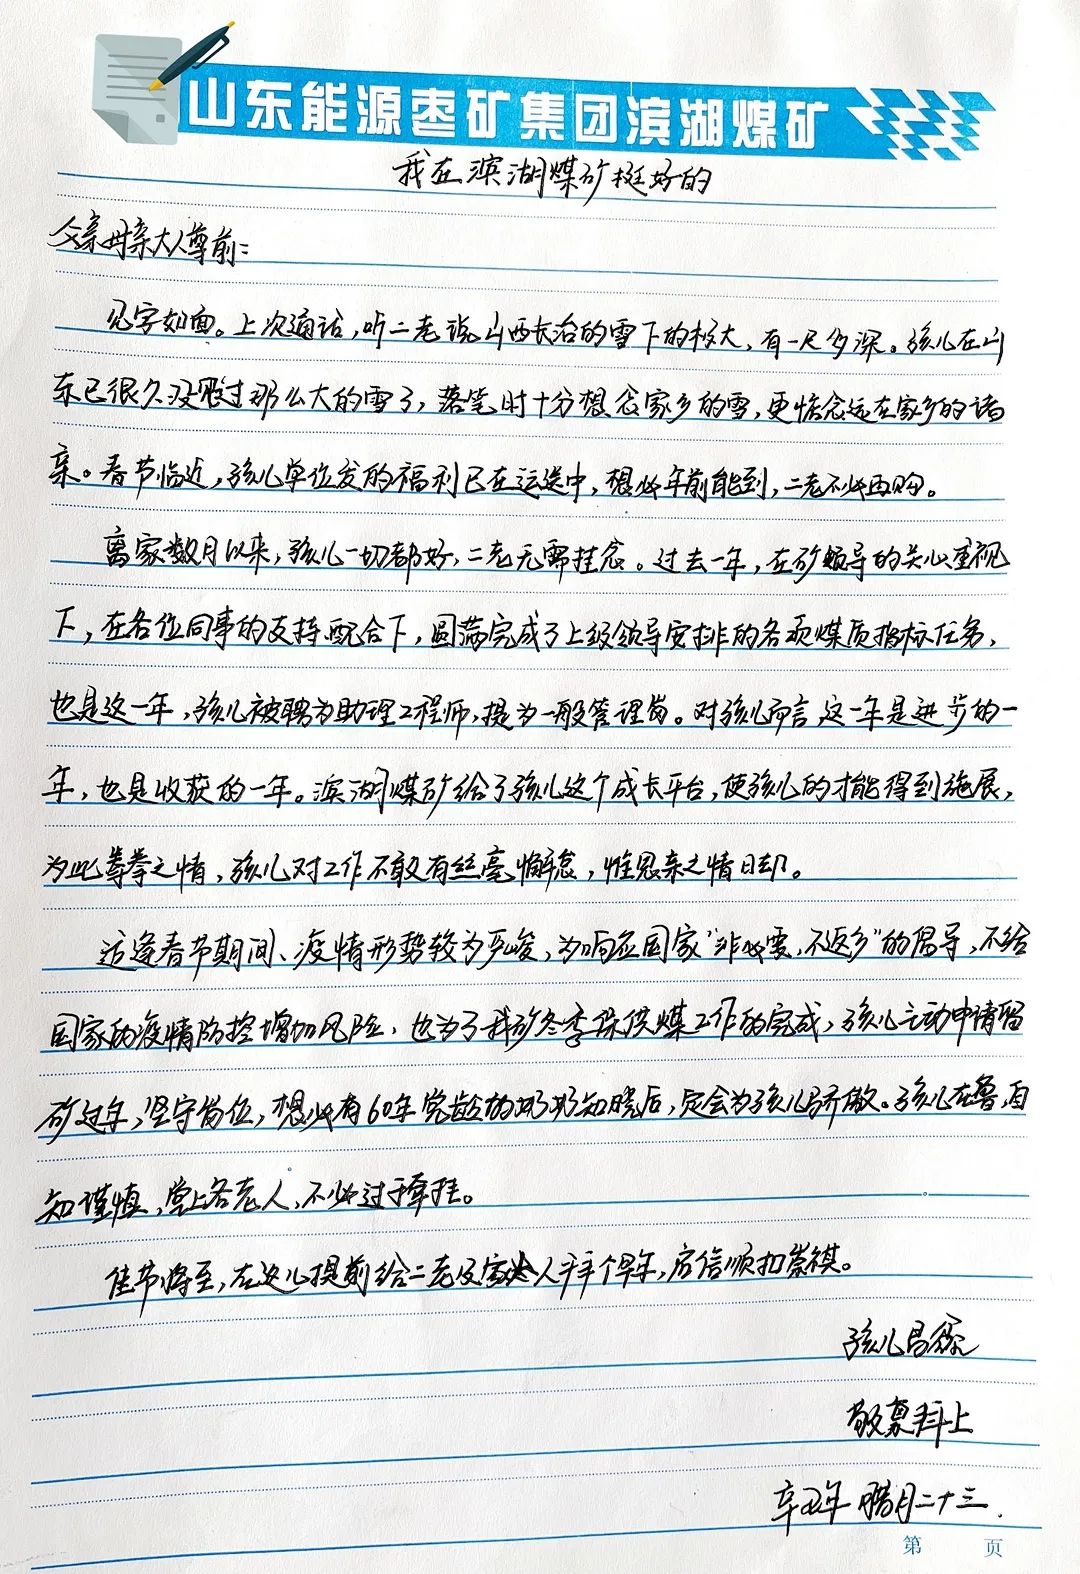 山东能源枣矿集团滨湖煤矿
我在滨湖煤矿挺好的
父亲母亲大人尊前：
见字如面。上次通话，听二老说山西长治的雪下的极大，有一尺多深。孩儿在山
东已很久没见过那么大的雪了，落笔时十分想念家乡的雪，更惦念远在家乡的诸
亲。春节临近，孩儿单位发的福利已在运送中，想必年前能到，二老不必再购。
离家数月以来，孩儿一切都好，二老无需挂念。过去一年，在矿领导的关心重视
下，在各位同事的支持配合下，圆满完成了上级领导安排的各项煤质指标任务，
也是这一年，孩儿被聘为助理工程师，提为一般管理岗。对孩儿而言这一年是进步的一
年，也是收获的一年。滨湖煤矿给了孩儿这个成长平台，使孩儿的才能得到施展，
为此拳拳之情，孩儿对工作不敢有丝毫懈怠，惟思亲之情日却。
适逢春节期间、疫情形势较为严峻，为响应国家“非必要，不返乡”的倡导，不给
国家的疫情防控增加风险，也为了我矿冬季保供煤工作的完成，孩儿主动申请留
矿过年，坚守岗位，想必有60年党龄的奶奶知晓后，定会为孩儿骄傲。孩儿在鲁，自
知谨慎，堂上各老人，不必过于牵挂。
佳节将至，在这儿提前给二老及家人拜个早年，启信顺扣崇祺。
孩儿昌
敬禀拜上
辛丑年 腊月二十三.
第 页